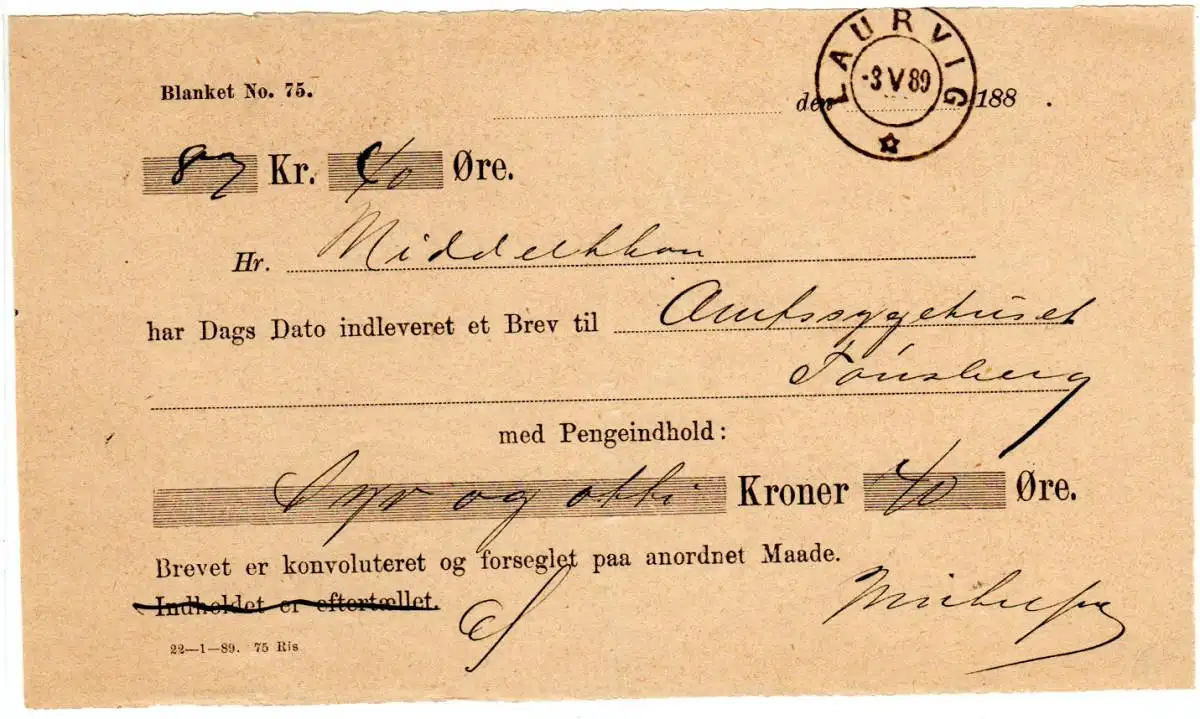 LAURVIG
-3 V 89
Blanket No. 75.
den 188 .
87 Kr. 40 Øre.
Hr. Middelthon
har Dags Dato indleveret et Brev til Amtssygehuset
Tønsberg
med Pengeindhold:
Syv og otti Kroner 40 Øre.
Brevet er konvoluteret og forseglet paa anordnet Maade.
Indholdet er eftertællet.
22—1—89. 75 Ris